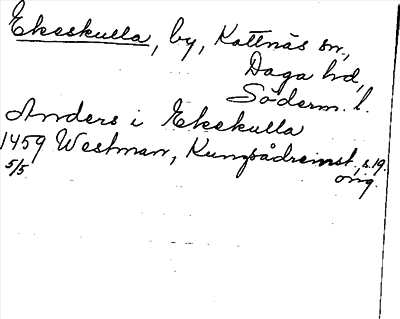 Ekeskulla, by, Kattnäs sn.,
Daga hd,
Söderm. l.
Anders i Ekekulla
1459 Westman, Kungsådreinst., s. 19.
5/5 orig.